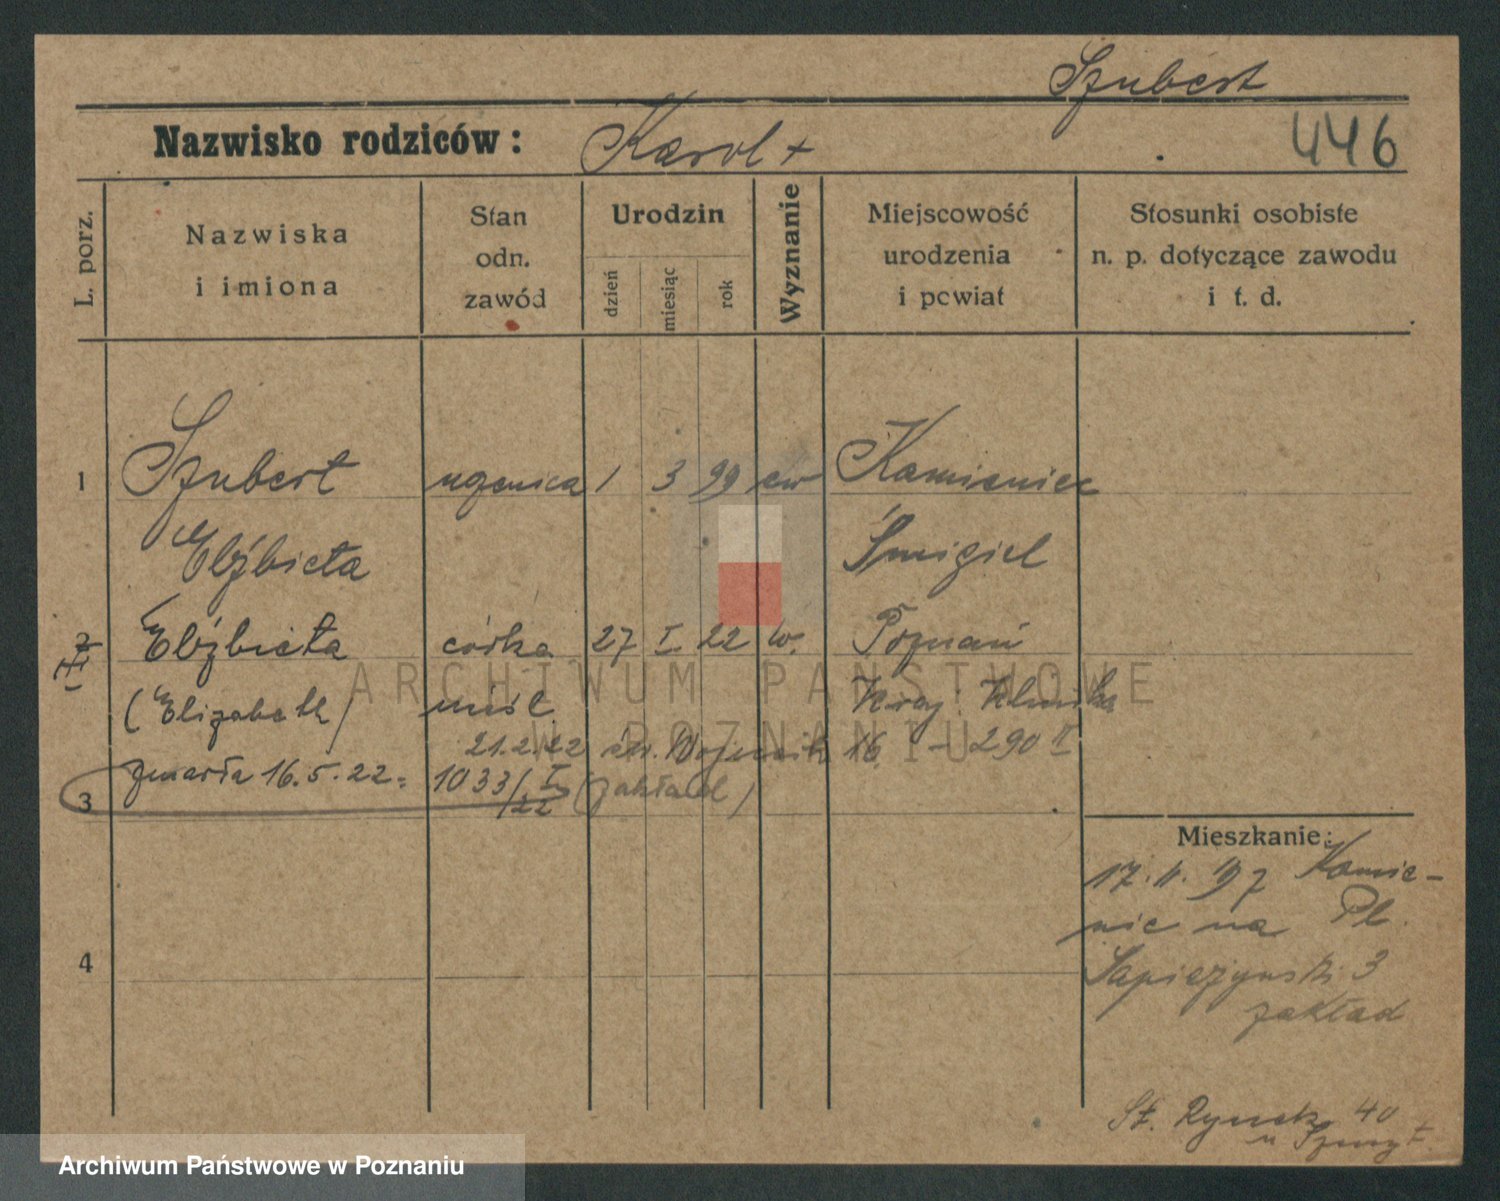 Szubert
Nazwisko rodziców: Karol +
446
L. porz.
Nazwiska
i imiona
Stan
odn.
zawód
Urodzin
dzień
miesiąc
rok
Wyznanie
Miejscowość
urodzenia
i powiat
Stosunki osobiste
n. p. dotyczące zawodu
i t. d.
1 Szubert uczenica 1 3 99 ew Kamieniec
Elżbieta Śmigiel
2 Elżbieta córka 27 I. 22 Poznań
(Elizabeth) nieśl. Kraj. Klinika
21.2.22 św. 16 - 290 II
zmarła 16.5.22. 1033/I 22 (zakład)
3
Mieszkanie:
17. Kamie-
niec na Pl.
Sapieżyński 3
zakład
4
St. Rynek 40
u
ARCHIWUM PAŃSTWOWE
W POZNANIU
Archiwum Państwowe w Poznaniu